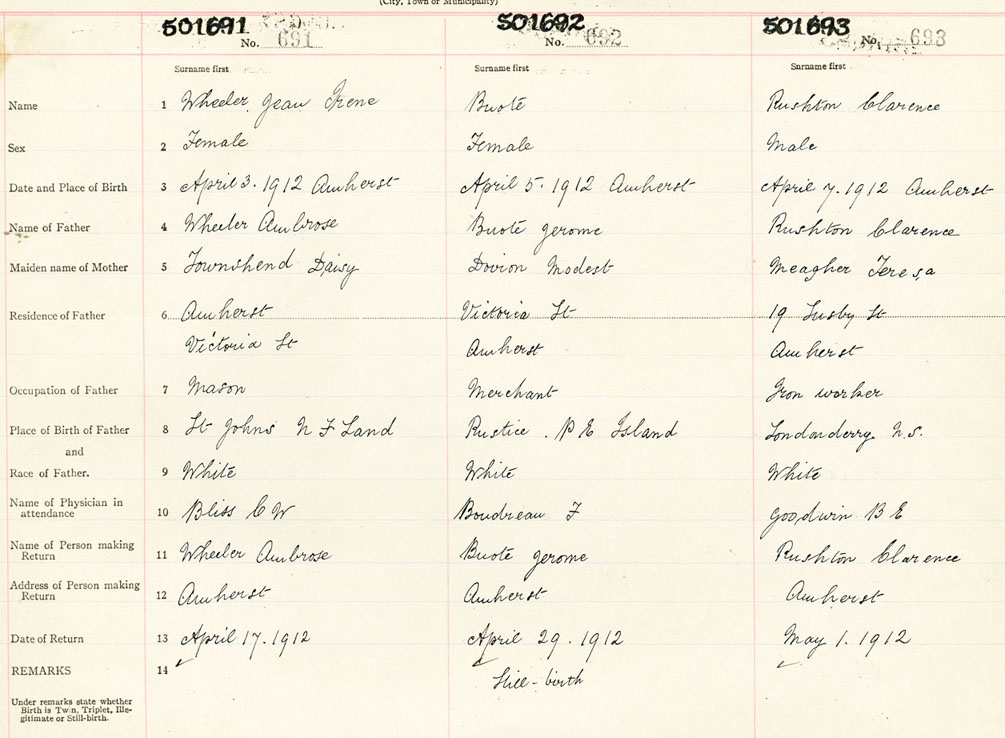 (City, Town or Municipality)
501691 501692 501693
No. 691 No. 692 No. 693
Surname first Surname first Surname first
Name 1 Wheeler Jean Irene Buote Rushton Clarence
Sex 2 Female Female Male
Date and Place of Birth 3 April 3. 1912 Amherst April 5. 1912 Amherst April 7. 1912 Amherst
Name of Father 4 Wheeler Ambrose Buote Jerome Rushton Clarence
Maiden name of Mother 5 Townshend Daisy Doiron Modest Meagher Teresa
Residence of Father 6 Amherst Victoria St 19 Lusby St
Victoria St Amherst Amherst
Occupation of Father 7 Mason Merchant Iron worker
Place of Birth of Father 8 St Johns N F Land Rustice. P E Island Londonderry N.S.
and
Race of Father. 9 White White White
Name of Physician in
attendance 10 Bliss C W Boudreau F Goodwin B E
Name of Person making
Return 11 Wheeler Ambrose Buote Jerome Rushton Clarence
Address of Person making
Return 12 Amherst Amherst Amherst
Date of Return 13 April 17. 1912 April 29. 1912 May 1. 1912
REMARKS 14 Still-birth
Under remarks state whether
Birth is Twin, Triplet, Ille-
gitimate or Still-birth.